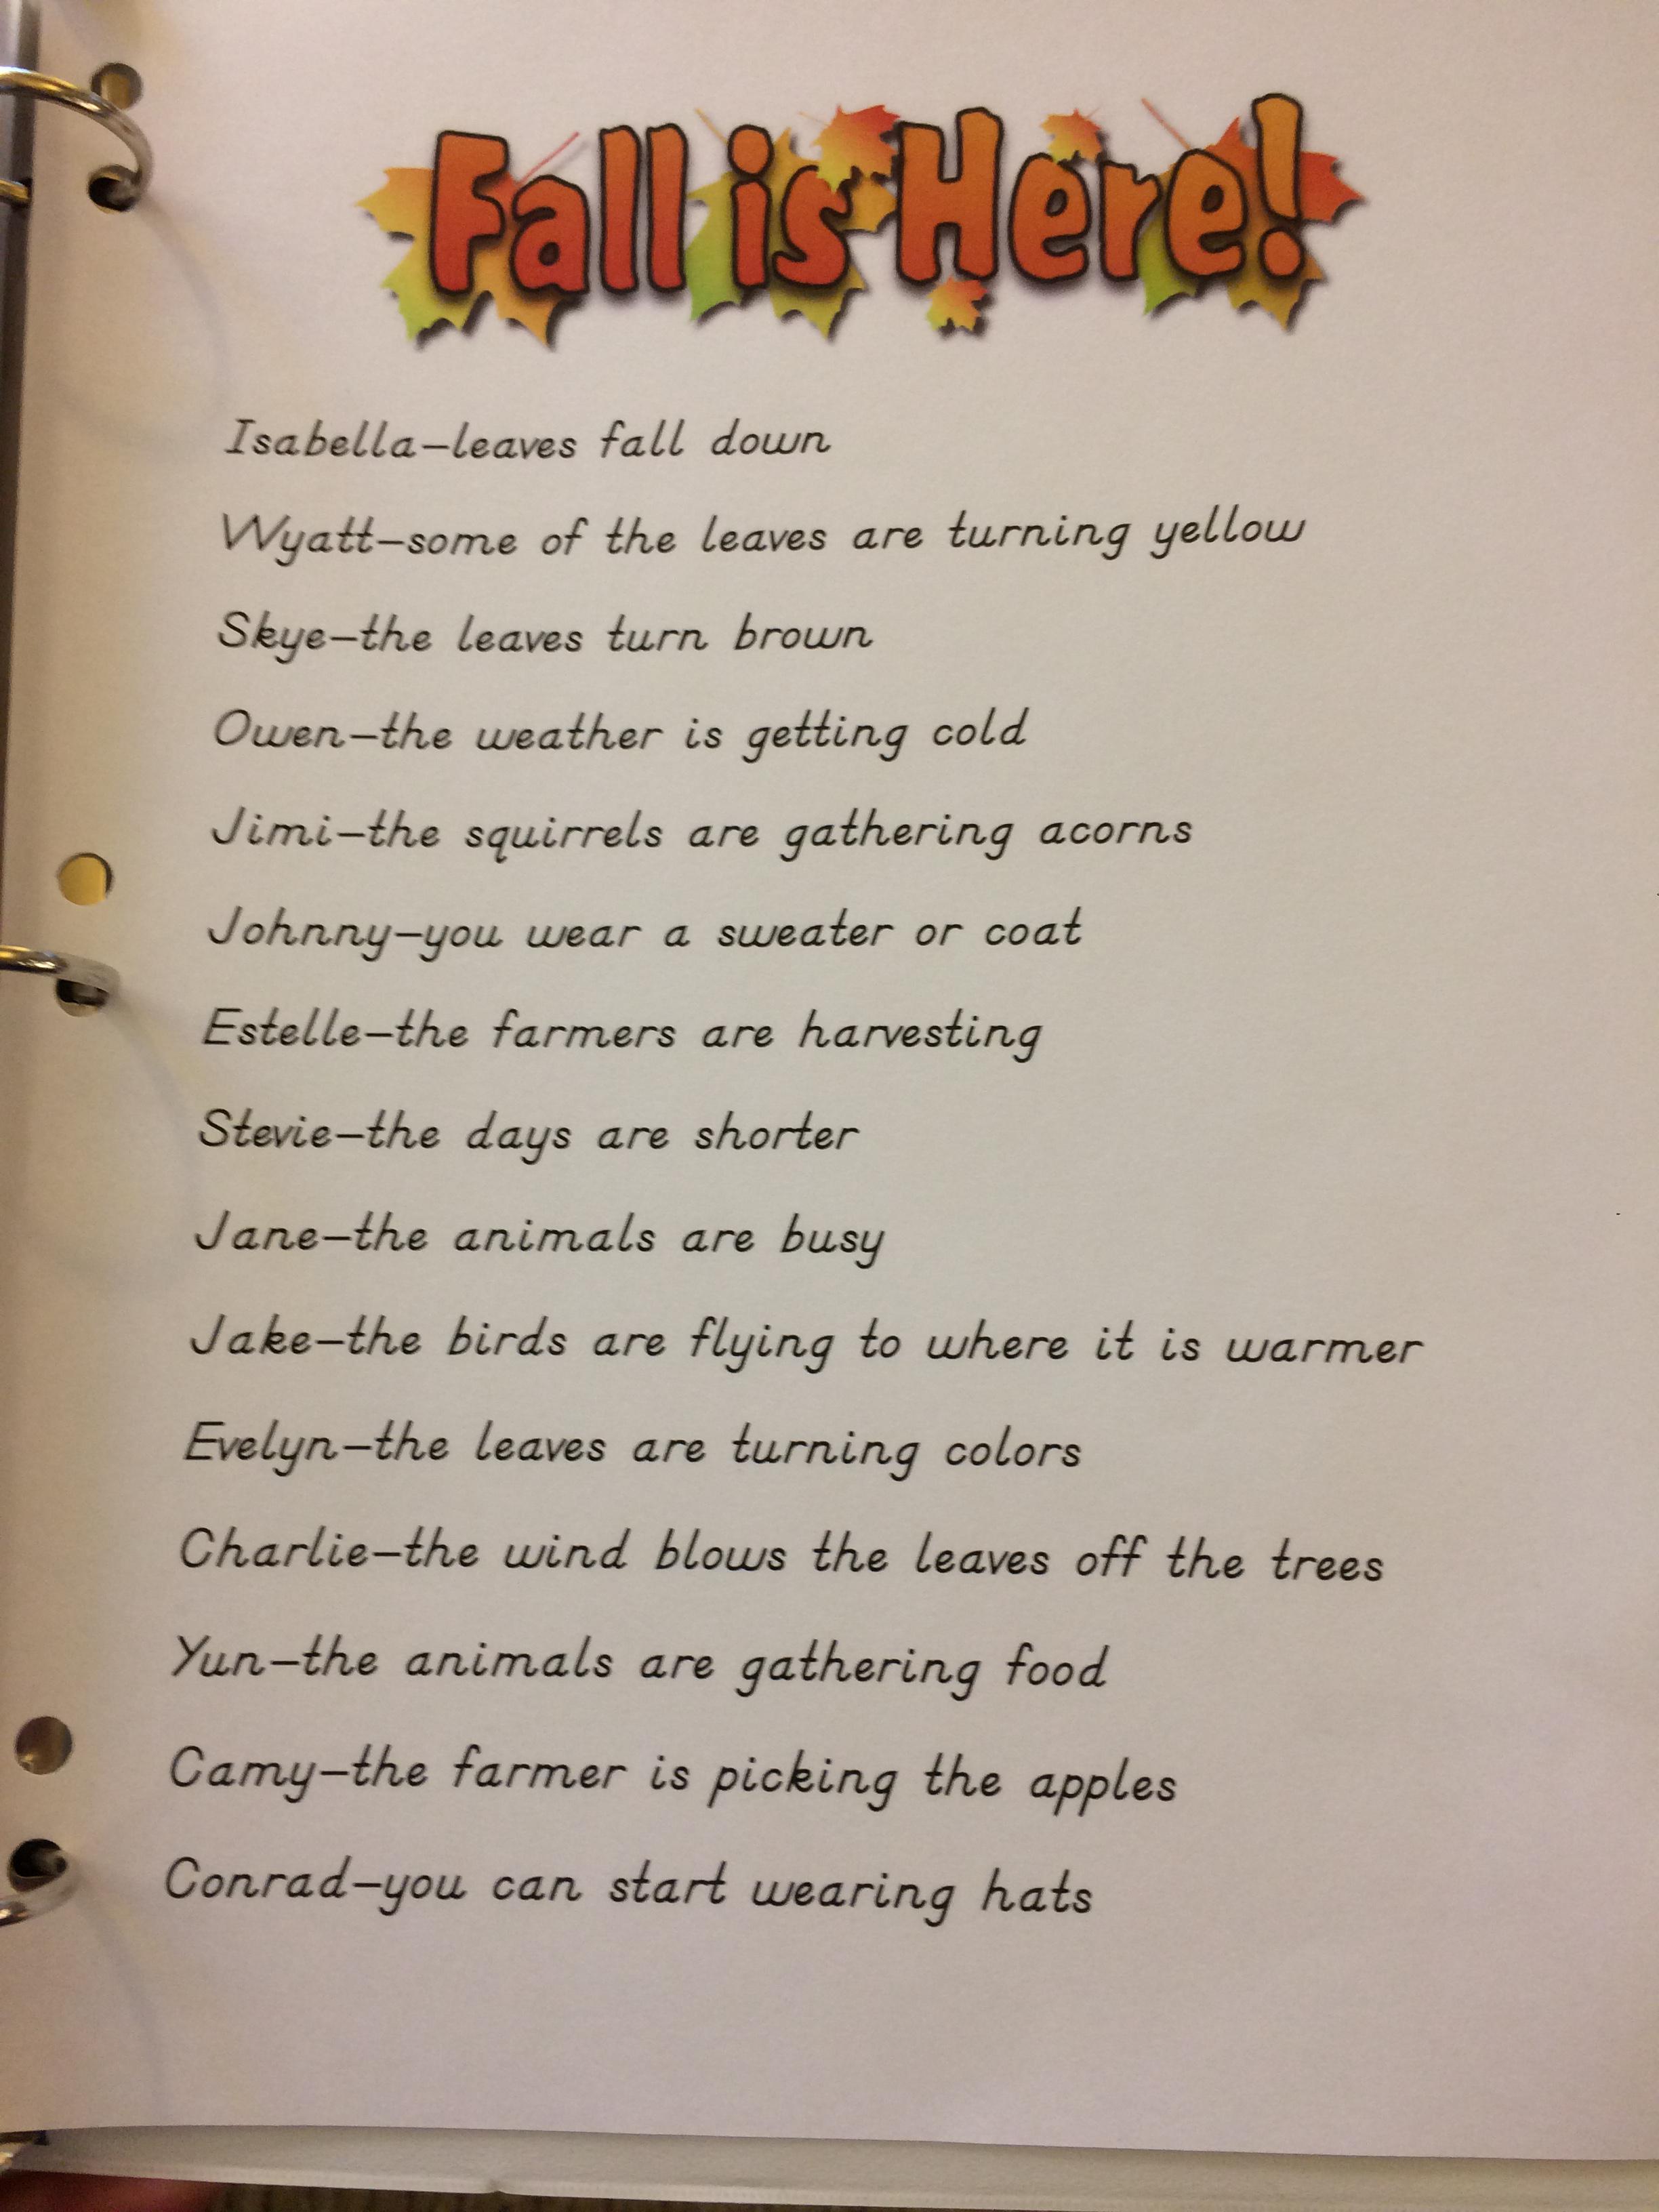 Fall is Here!
Isabella–leaves fall down
Wyatt–some of the leaves are turning yellow
Skye–the leaves turn brown
Owen–the weather is getting cold
Jimi–the squirrels are gathering acorns
Johnny–you wear a sweater or coat
Estelle–the farmers are harvesting
Stevie–the days are shorter
Jane–the animals are busy
Jake–the birds are flying to where it is warmer
Evelyn–the leaves are turning colors
Charlie–the wind blows the leaves off the trees
Yun–the animals are gathering food
Camy–the farmer is picking the apples
Conrad–you can start wearing hats